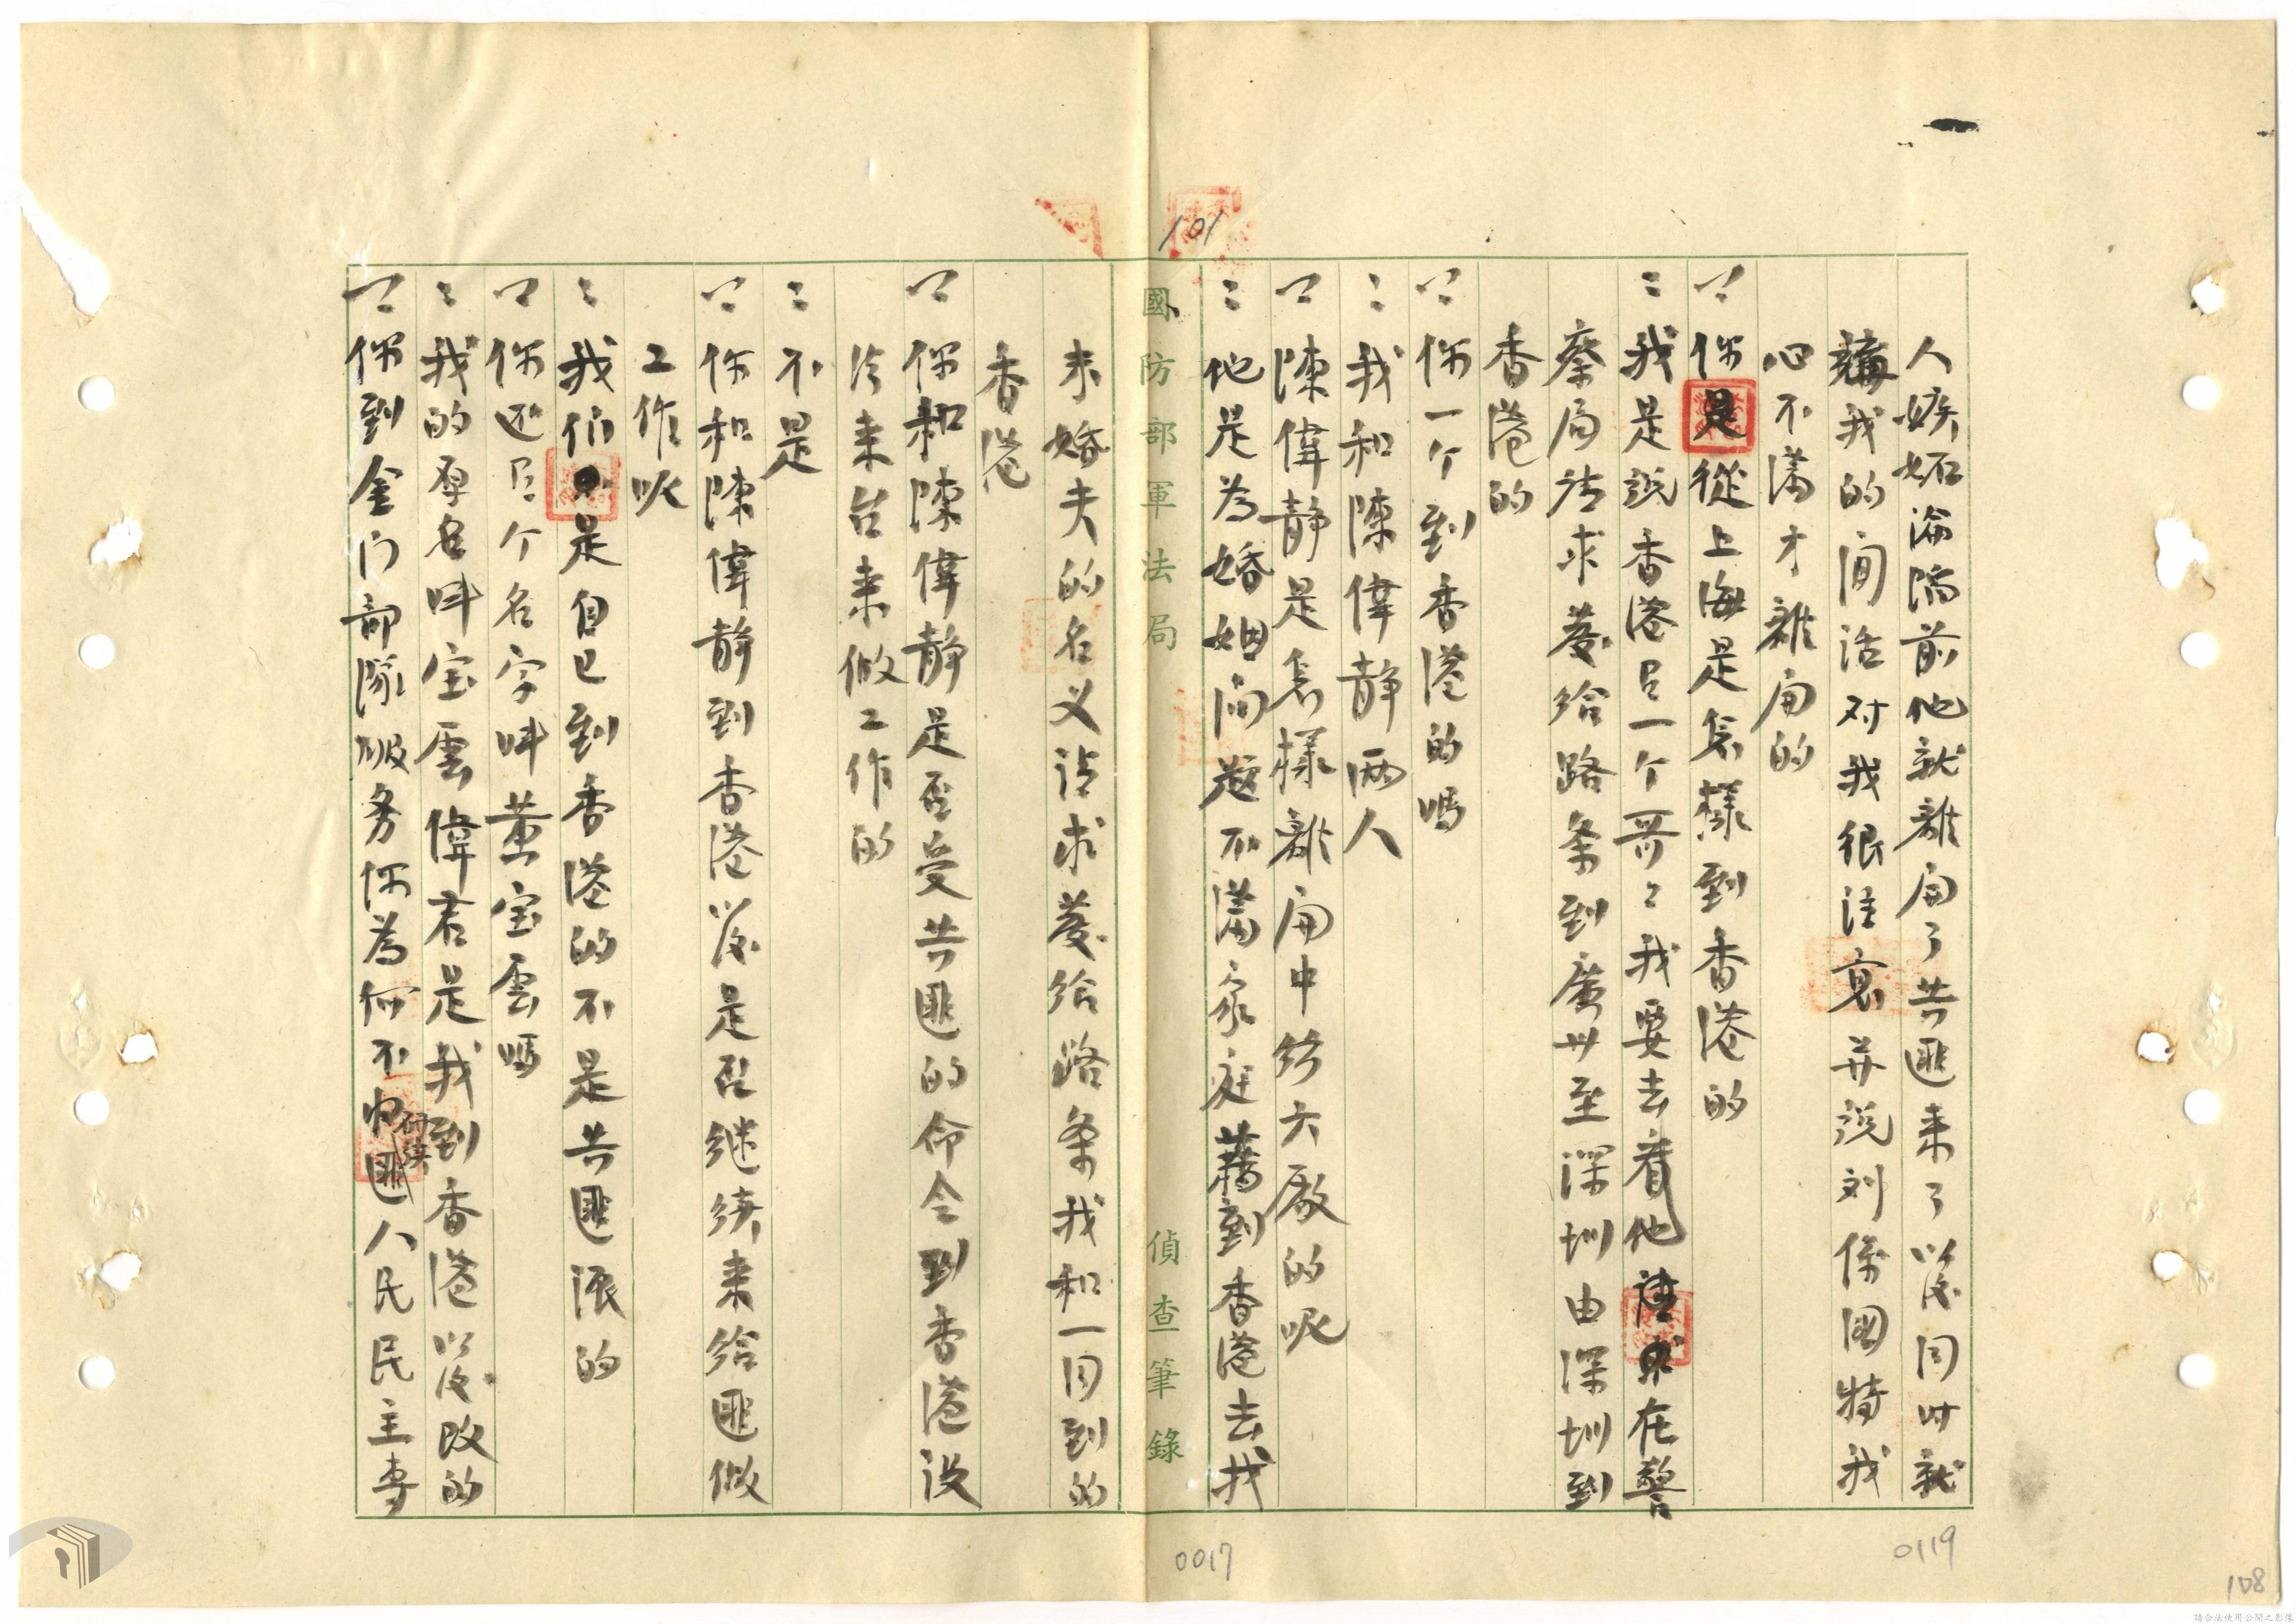 人嫉妬淪陷前他就離開了共匪來了以後同时就
講我的閒話对我很注意并説刘係國特我
心不滿才離開的
問你是從上海是怎樣到香港的
答我是説香港有一个哥々我要去看他請求在警
察局請求發給路条到廣州至深圳由深圳到
香港的
問你一个到香港的嗎
答我和陳偉静兩人
問陳偉静是怎樣離開中紡六廠的呢
答他是為婚姻问題不滿家庭藉到香港去找
101
國防部軍法局 偵查筆錄
未婚夫的名义請求發給路条我和一同到的
香港
問你和陳偉静是否受共匪的命令到香港没
後来台来做工作的
答不是
問你和陳偉静到香港以後是否继续来給匪做
工作呢
答我们是自己到香港的不是共匪派的
問你还有个名字叫黄宝雲嗎
答我的原名叫宝雲偉君是我到香港以後改的
問你到金门部隊服务你為何不研讀匪人民民主專
0017
0119
108
請合法使用公開之影像